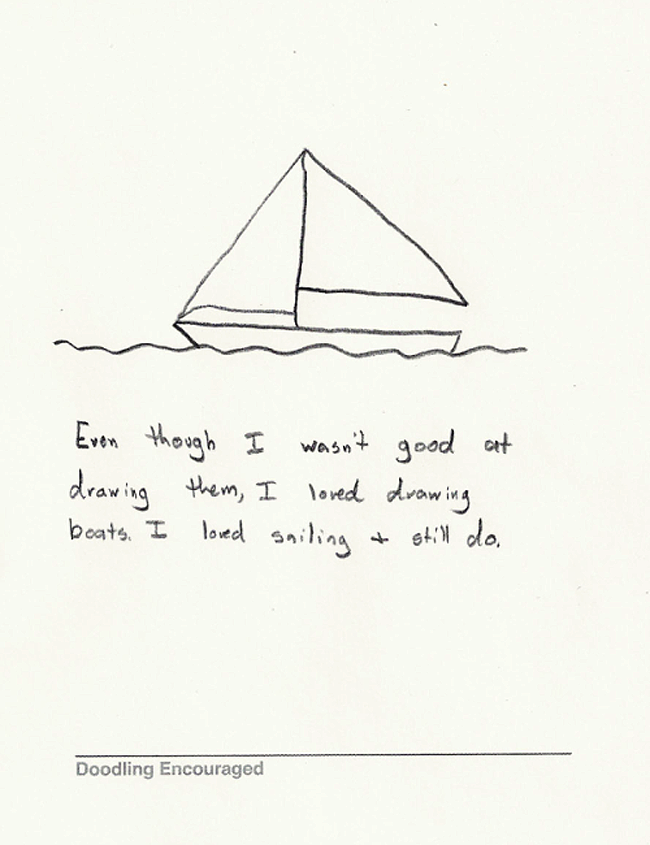 Even though I wasn't good at
drawing them, I loved drawing
boats. I loved sailing + still do.
Doodling Encouraged